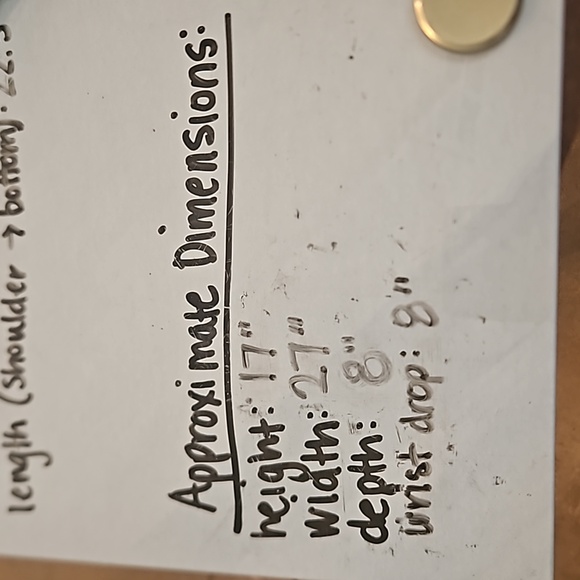 length (shoulder → bottom): 22.5
Approximate Dimensions:
height: 17"
width: 27"
depth: 8"
wrist drop: 8"